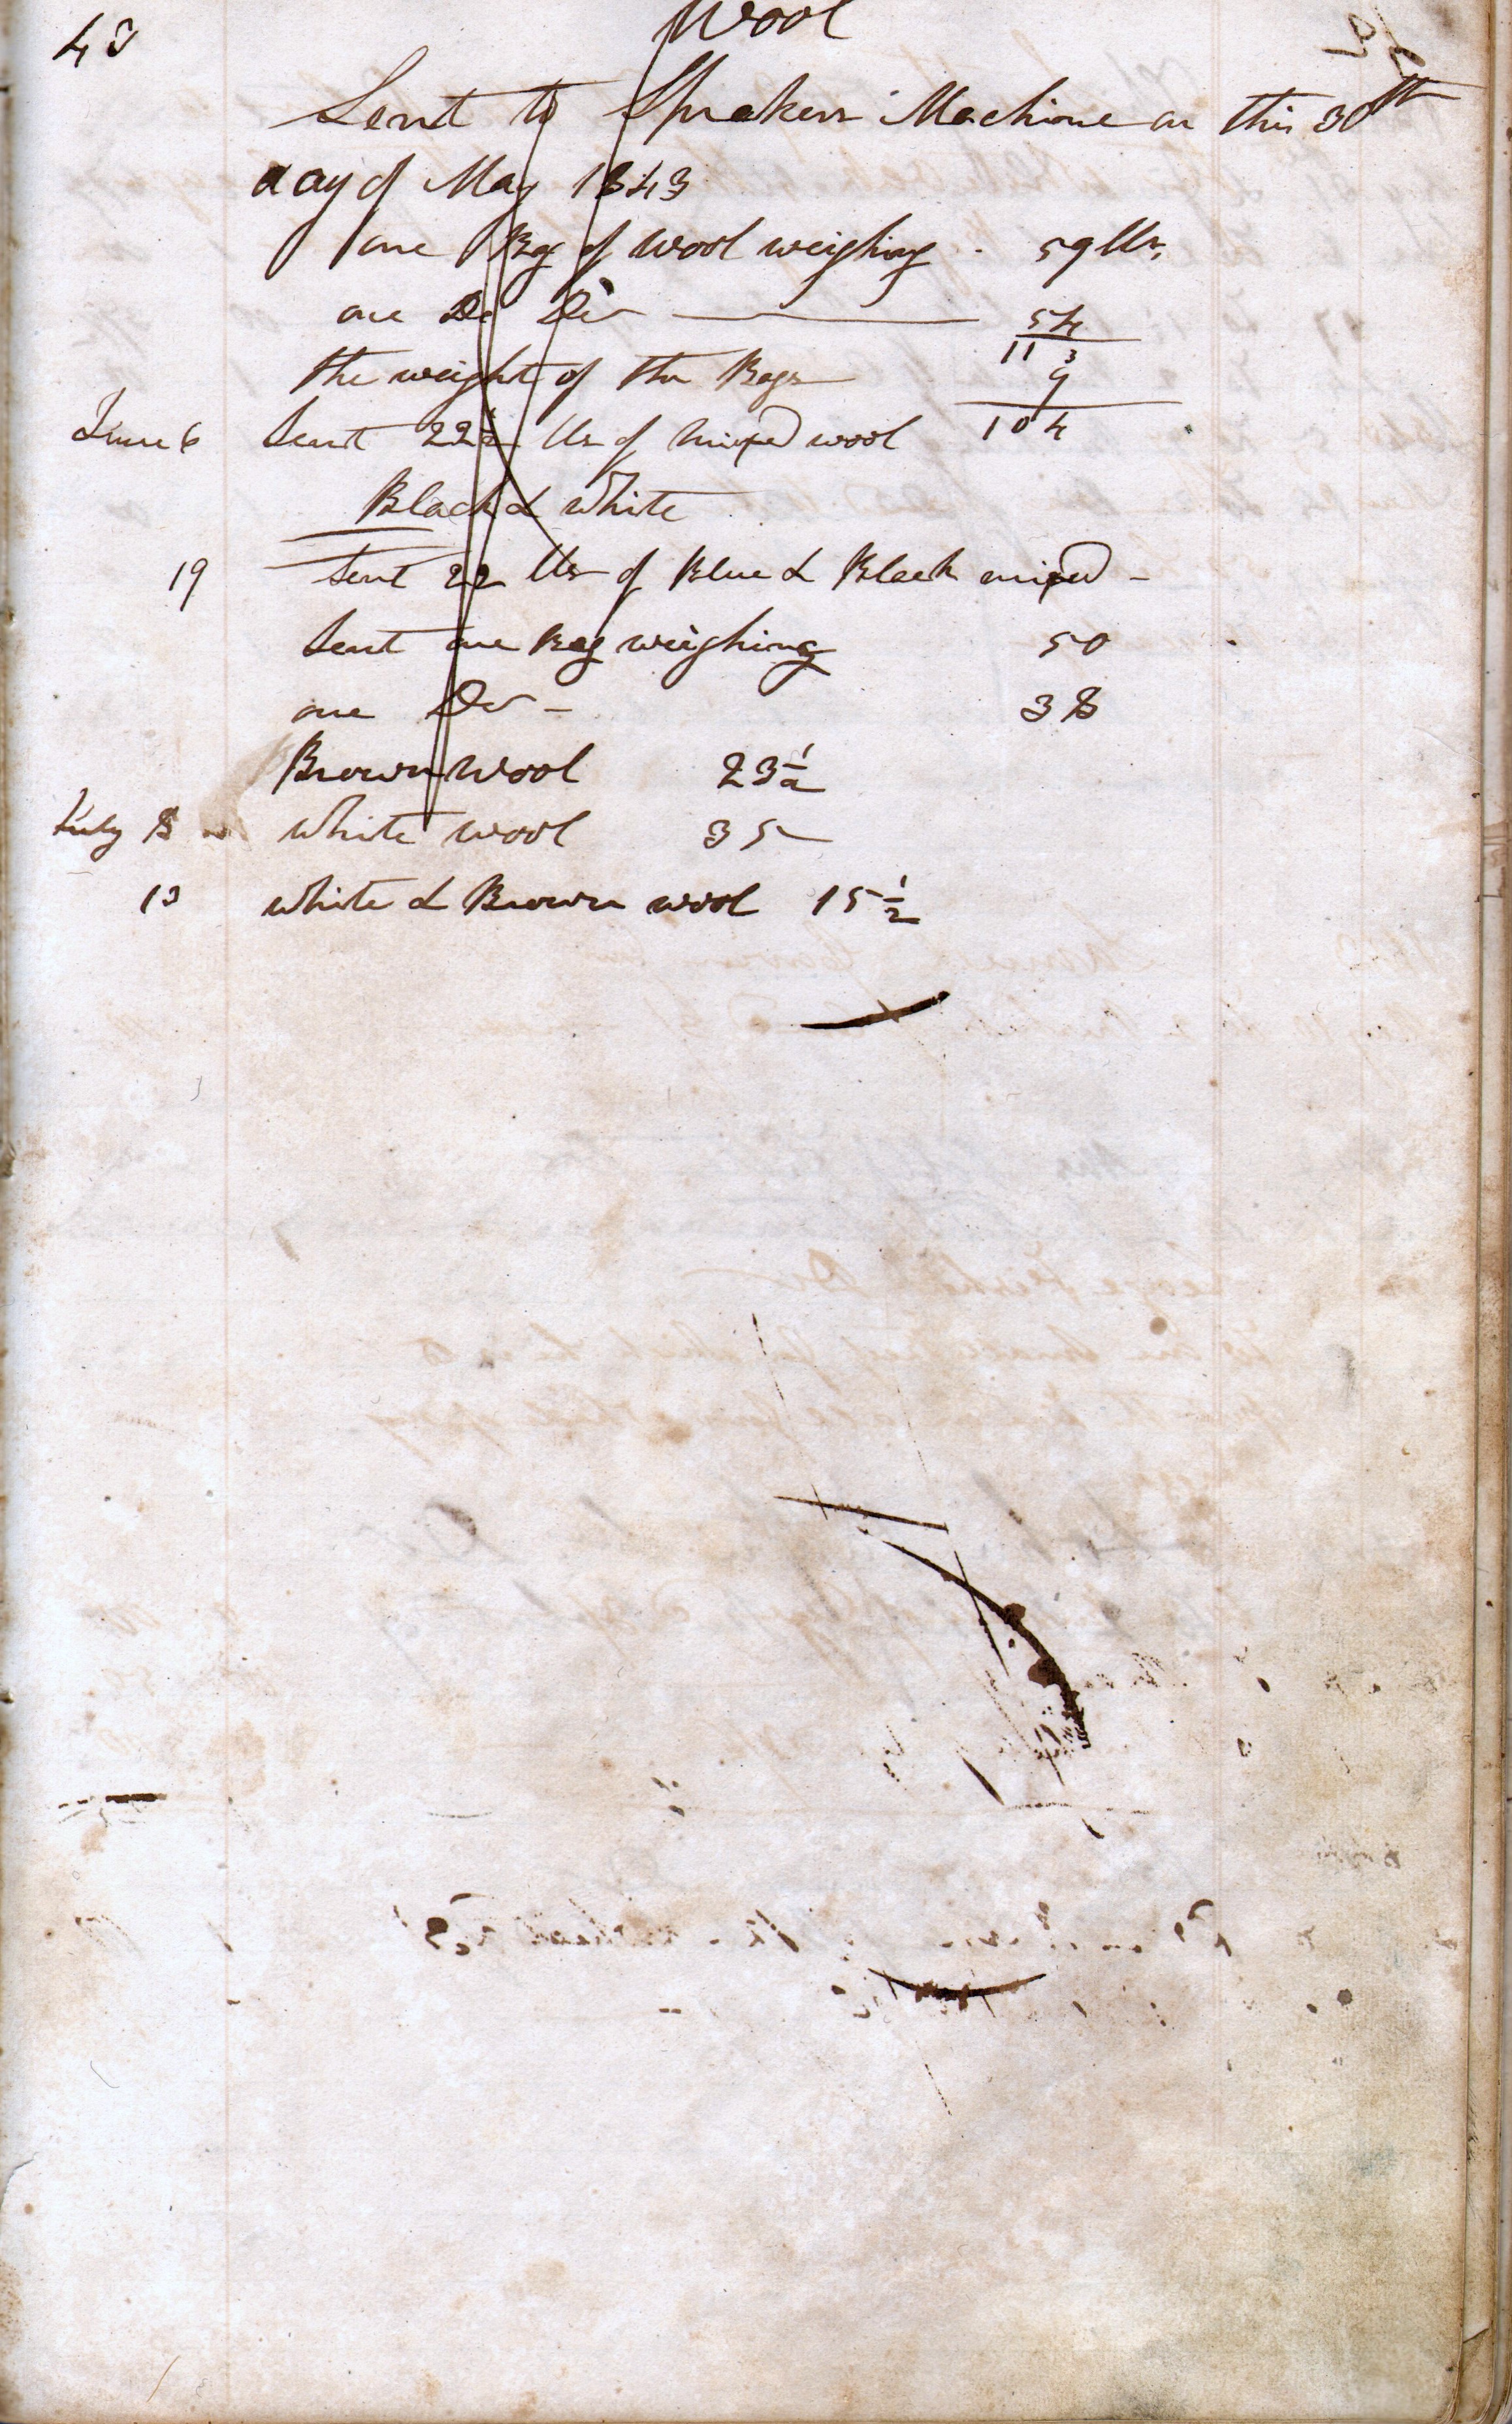 Wool
43
Sent to Sprakers Machine on this 30th
day of May 1843
one Bag of wool weighing - 59 lbs.
one Do Do 54
113
the weight of the Bags 9
104
June 6 Sent 22½ lbs of mixed wool
Black & white
19 Sent 22 lbs of Blue & Black mixed -
Sent one Bag weighing 50
one Do - 38
Brown wool 23½
July 8 white wool 35
13 white & Brown wool 15½